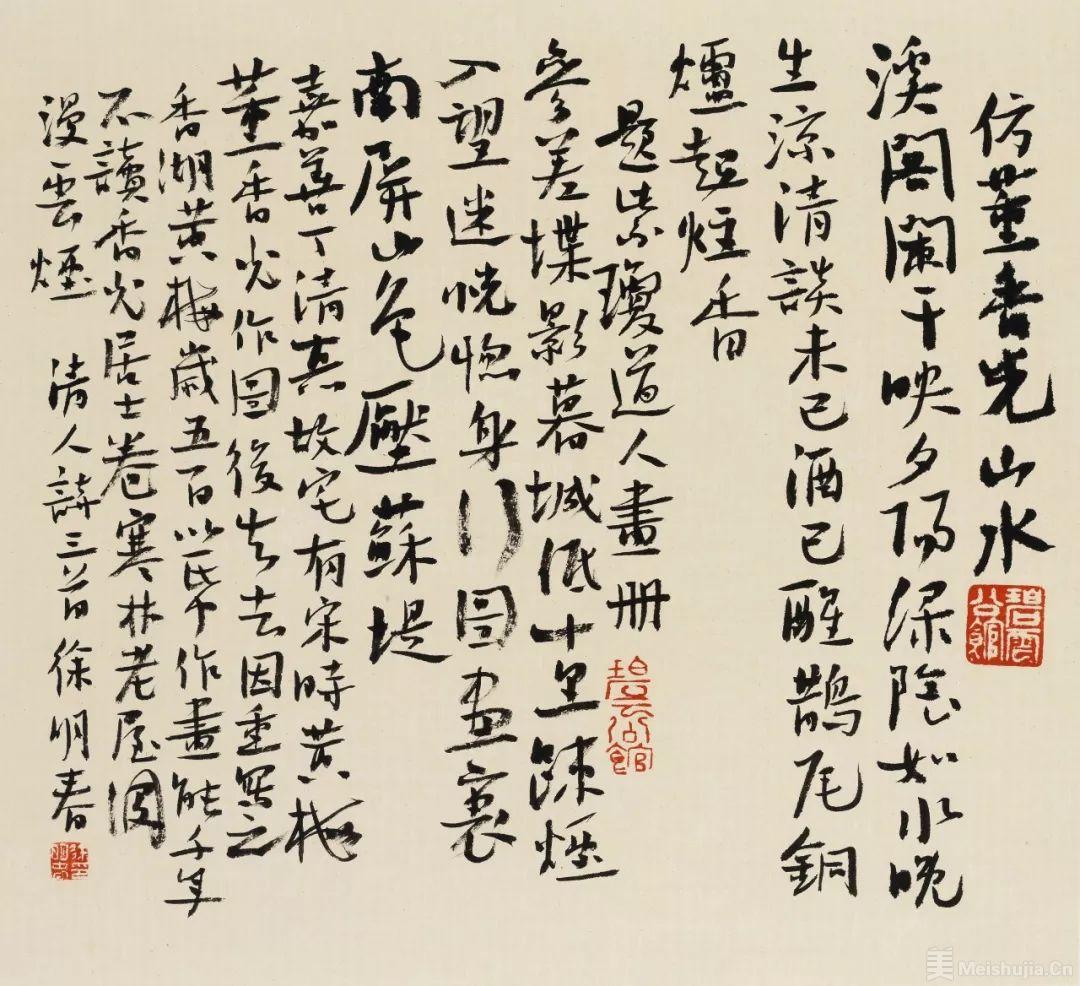 仿董香光山水
碧雲公館
溪閣闌干映夕陽綠陰如水晚
生涼清談未已酒已醒鵲尾銅
爐起炷香
題紫瓊道人畫冊
碧雲公館
參差堞影暮城低十里踈煙
入望迷恍惚身行圖画裏
南屏山色壓蘇堤
嘉善丁清真故宅有宋時黄梅
董香光作圖後失去因重寫之
香湖黄梅歲五百以帋作畫能千年
不讀香光居士卷寒林老屋
漫雲煙 清人詩三首徐明春
美 Meishujia.Cn